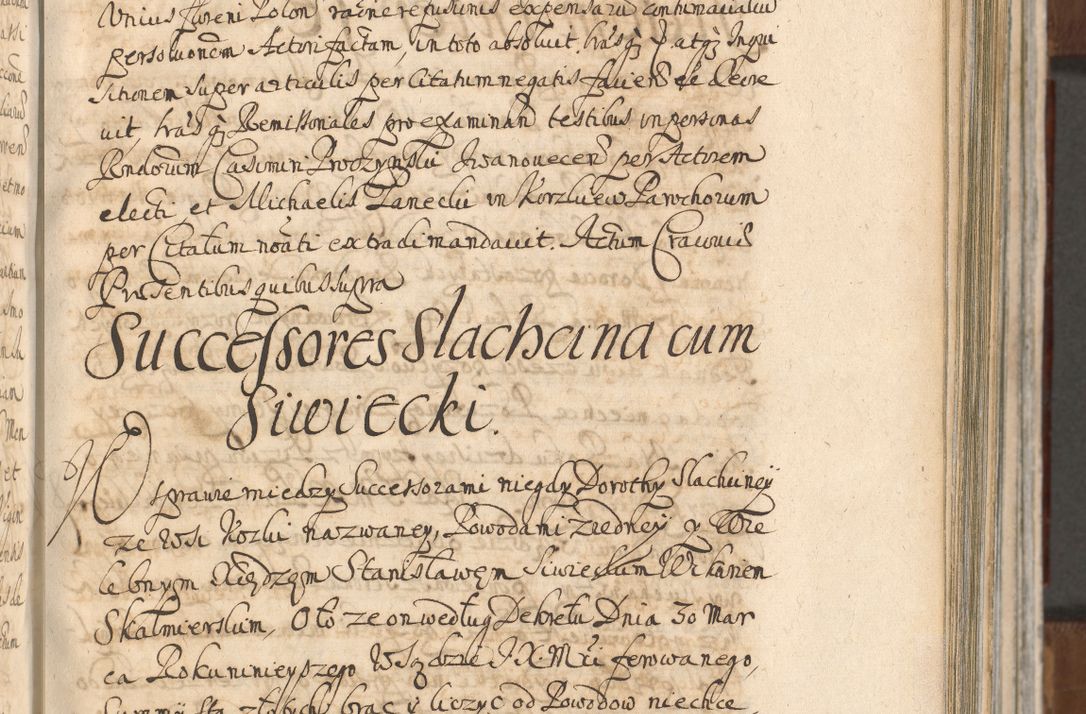 Unius Fureni Polon racne refusionis expensaru contumacialiu
persolvonem Actori factam, in toto absolvit
sitionem super articulis per Citatum negatis
vit, Remissionales pro examinan testibus in personas
Casimiri per Actorem
electi et Michaelis Janecki in Korzkiew Parochorum
per Citatum noati extradi mandavit. Actum Cracoviæ
Præsentibus quibus supra
Successores Slachcina cum
Siwiecki.
W sprawie miedzy Successorami niegdy Dorothy Slachciney
ze Wsi Kozlu nazwaney, Powodami z iedney y Wie
lebnym Xiędzem Stanisławem Siwieckim Wikariem
Skalmierskim, O to ze on według Dekretu Dnia 30 Mar
ca Roku ninieyszego W Sądzie J. X. Mci ferowanego,
Summy Sta złotych brac y liczyc od Powodow niechce,